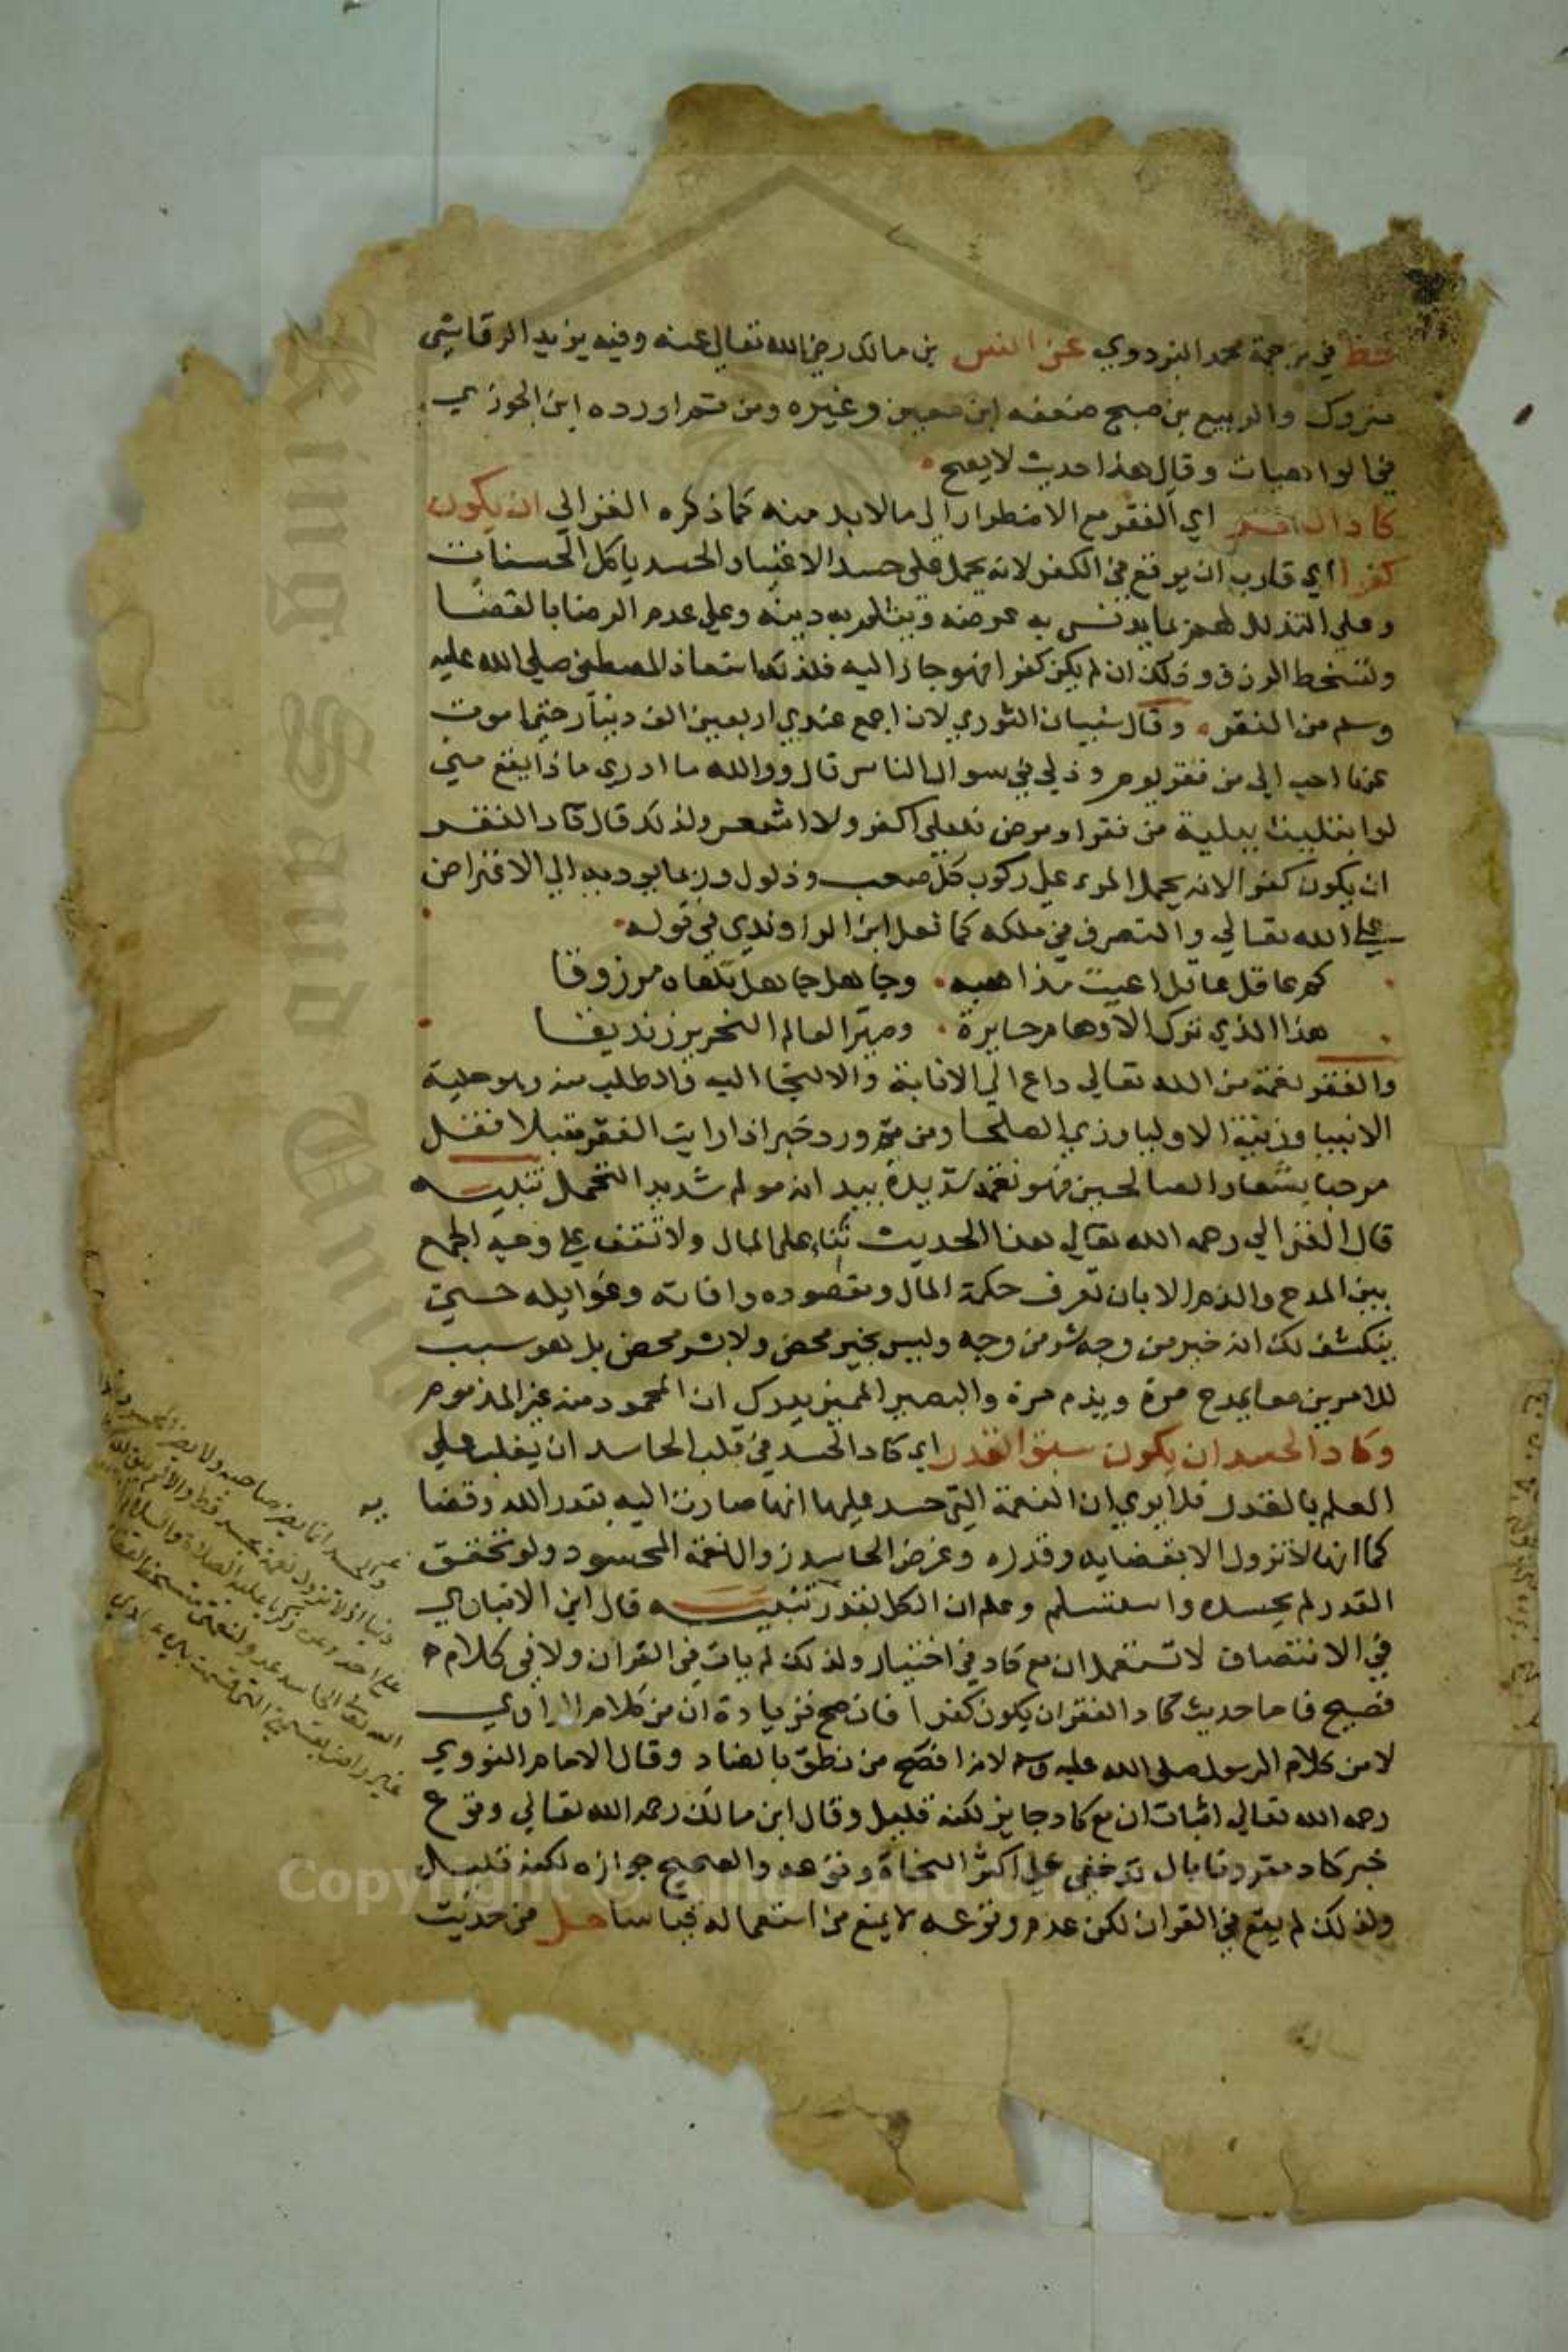 خط في ترجمة محمد البزدوي عن انس بن مالك رضي الله تعالى عنه وفيه يزيد الرقاشي
متروك والربيع بن صبيح ضعفه ابن معين وغيره ومن ثم اورده ابن الجوزي
في الواهيات وقال هذا حديث لا يصح
كاد الفقر اي الفقر مع الاضطرار الى ما لا بد منه كما ذكره الغزالي ان يكون
كفرا اي قارب ان يوقع في الكفر لانه يحمل على حسد الاغنيا والحسد ياكل الحسنات
وعلى التذلل لهم بما يدنس به عرضه ويثلم به دينه وعلى عدم الرضا بالقضا
وتسخط الرزق وذلك ان لم يكن كفرا فهو جار اليه فلذلك استعاذ المصطفى صلى الله عليه
وسلم من الفقر وقال سفيان الثوري لان اجمع عندي اربعين الف دينار حتى اموت
عنها احب الي من فقر يوم وذلي في سوال الناس قال ووالله ما ادري ماذا يقع مني
لو ابتليت ببلية من فقر او مرض فلعلي اكفر ولا اشعر ولذلك قال كاد الفقر
ان يكون كفرا لانه يحمل المرء على ركوب كل صعب وذلول وربما يوديه الى الاعتراض
على الله تعالى والتصرف في ملكه كما فعل ابن الراوندي في قوله
كم عاقل عاقل اعيت مذاهبه وجاهل جاهل تلقاه مرزوقا
هذا الذي ترك الاوهام حايرة وصير العالم النحرير زنديقا
والفقر نعمة من الله تعالى داع الى الانابة والالتجا اليه والطلب منه وهو حلية
الانبيا وزينة الاوليا وزي الصلحا ومن ثم ورد خبر اذا رايت الفقر مقبلا فقل
مرحبا بشعار الصالحين فهو نعمة شديدة بيد انه مولم شديد التحمل تنبيه
قال الغزالي رحمه الله تعالى هذا الحديث ثناء على المال ولا تقف على وجه الجمع
بين المدح والذم الا بان تعرف حكمة المال ومقصوده وافاته وغوايله حتى
ينكشف لك انه خير من وجه شر من وجه وليس بخير محض ولا بشر محض بل هو سبب
للامرين معا يمدح مرة ويذم مرة والبصير المميز يدرك ان المحمود منه غير المذموم
وكاد الحسد ان يكون سبق القدر اي كاد الحسد في قلب الحاسد ان يغلب على
العلم بالقدر فلا يرى ان النعمة التي حسد عليها انها صارت اليه بقدر الله وقضا به
كما انها لا تزول الا بقضايه وقدره وغرض الحاسد زوال نعمة المحسود ولو تحقق
القدر لم يحسده واستسلم وعلم ان الكل بقدر تنبيه قال ابن الانباري
في الانتصاف لا تستعمل ان مع كاد في اختيار ولذلك لم يات في القران ولا في كلام
فصيح فاما حديث كاد الفقر ان يكون كفرا فان صح فزيادة ان من كلام الراوي
لا من كلام الرسول صلى الله عليه وسلم لانه افصح من نطق بالضاد وقال الامام النووي
رحمه الله تعالى اثبات ان مع كاد جايز لكنه قليل وقال ابن مالك رحمه الله تعالى وقوع
خبر كاد مقرونا بان قد خفي على اكثر النحاة وقوعه والصحيح جوازه لكنه قليل
ولذلك لم يقع في القران لكن عدم وقوعه لا يمنع من استعماله قياسا حل من حديث
والحسد انما يضر صاحبه ولا يضر المحسود في
دنياه اذ لا تزول نعمة بحسد قط والا لم تبق لله نعمة
على احد وعن زكريا عليه الصلاة والسلام قال
الله تعالى الحاسد عدو لنعمتي متسخط لقضاي
غير راض بقسمتي التي قسمت بين عبادي
Copyright © King Saud University
King Saud Univ